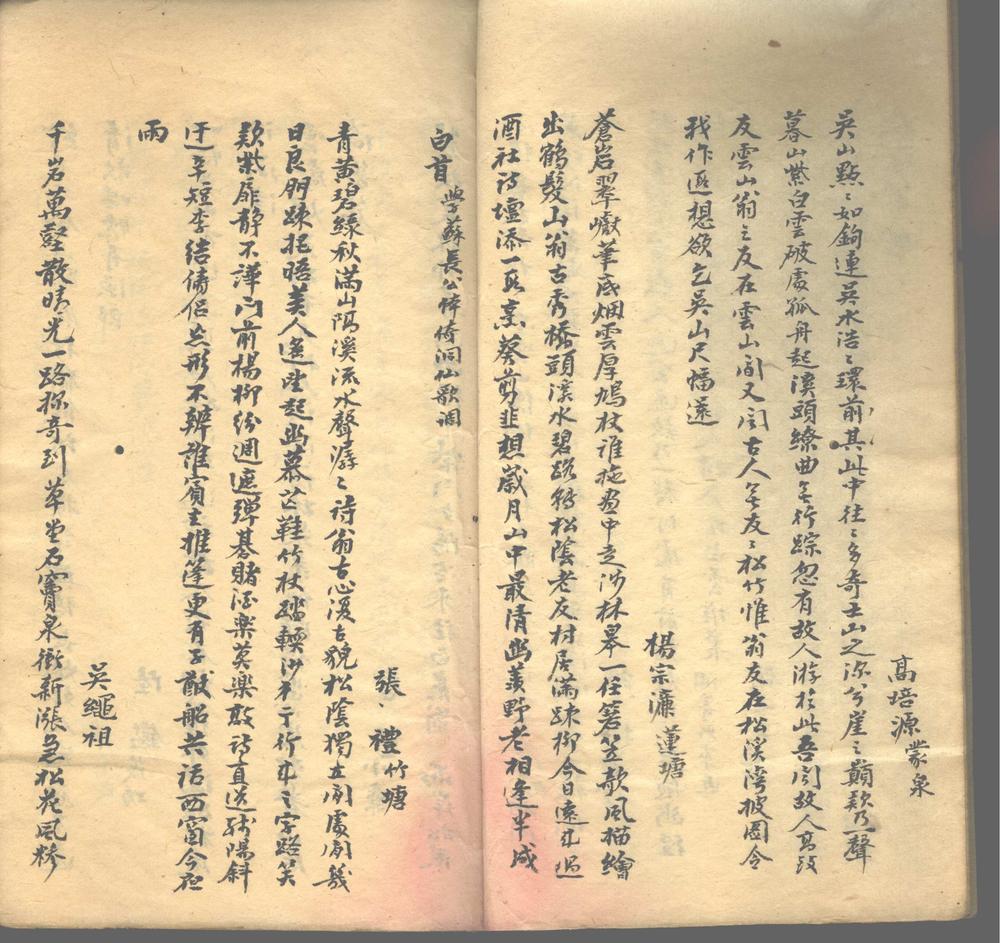 高培源蒙泉
吳山點〻如鉤連吳水浩〻環前其此中往〻多奇士山之深兮崖之巔欸乃一聲
暮山紫白雲破處孤舟起溪頭繚曲無行踪忽有故人游於此吾聞故人高致
友雲山翁之友在雲山間又聞古人無友〻松竹惟翁友在松溪灣披圖令
我作遐想欲乞吳山尺幅還
楊宗濂蓮塘
蒼岩翠巘筆底烟雲厚鳩杖誰拖畫中走沙林皋一任箬笠欹風描繪
出鶴髮山翁古秀橋頭溪水碧路轉松陰老友村居滿疎柳今日遠來過
酒社詩壇添一 烹葵剪韭想歲月山中最清幽羨野老相逢半成
白首 學蘇長公体倚洞仙歌調
張禮竹塘
青黃碧綠秋滿山隅溪流水聲潺〻詩翁古心復古貌松陰獨立閑處閑幾
日良朋疎把晤美人遙望起幽慕芒鞋竹杖踏輭沙彳亍行來之字路笑
欵柴扉静不譁門前楊柳纷週遮彈碁賭酒樂莫樂敲詩直送殘陽斜
迂辛短李結儔侶忘形不辨誰賓主推篷更有子猷船共話西窗今夜
雨
吳繩祖
千岩萬壑散晴光一路探奇到草堂石竇泉衝新漲急松花風糝